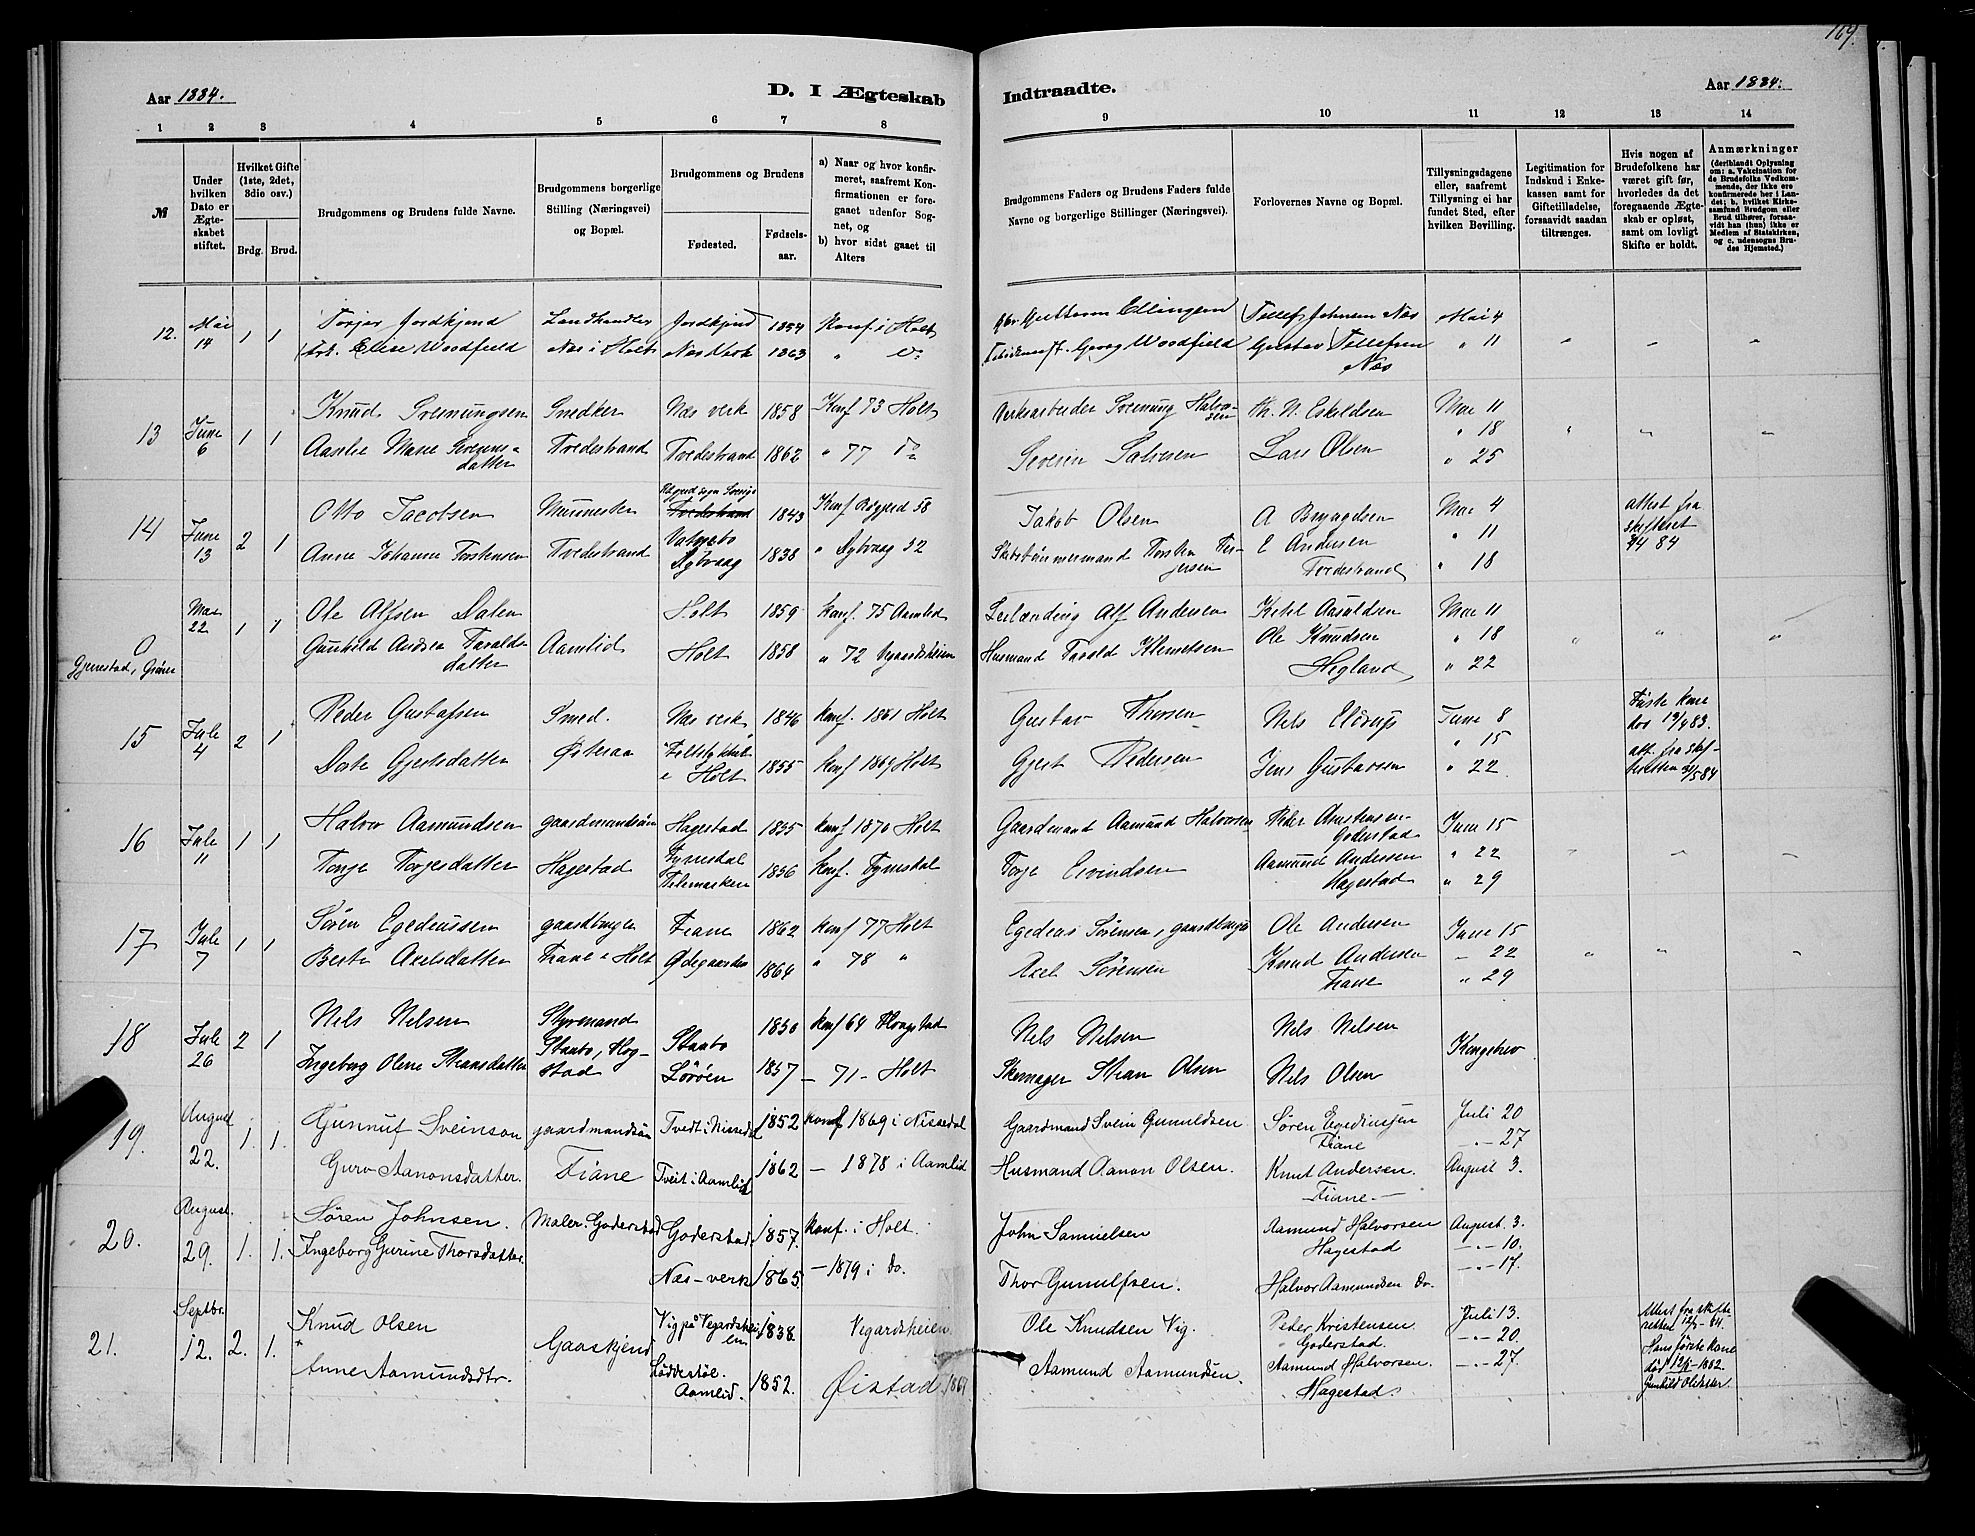 169.
Aar 1884.
D. I Ægteskab
Indtraadte.
Aar 1884.
1 2 3 4 5 6 7 8
9 10 11 12 13 14
№
Under hvilken Dato er Ægteskabet stiftet.
Hvilket Gifte (1ste, 2det, 3die osv.)
Brdg. Brud.
Brudgommens og Brudens fulde Navne.
Brudgommens borgerlige Stilling (Næringsvei) og Bopæl.
Brudgommens og Brudens
Fødested.
Fødselsaar.
a) Naar og hvor konfirmeret, saafremt Konfirmationen er foregaaet udenfor Sognet, og
b) hvor sidst gaaet til Alters
Brudgommens Faders og Brudens Faders fulde Navne og borgerlige Stillinger (Næringsvei).
Forlovernes Navne og Bopæl.
Tillysningsdagene eller, saafremt Tillysning ei har fundet Sted, efter hvilken Bevilling.
Legitimation for Indskud i Enkekassen samt for Giftetilladelse, forsaavidt saadan tiltrænges.
Hvis nogen af Brudefolkene har været gift før, hvorledes da det foregaaende Ægteskab er opløst, samt om lovligt Skifte er holdt.
Anmærkninger (deriblandt Oplysning om: a. Vakcination for de Brudefolks Vedkommende, der ikke ere konfirmerede her i Landet; b. hvilket Kirkesamfund Brudgom eller Brud tilhører, forsaavidt han (hun) ikke er Medlem af Statskirken, og c. udensogns Brudes Hjemsted.)
12. Mai 14 1 1 Torjer Jordkjend Landhandler Jordkjend 1854 Konf. i Holt Guttorm Ellingsen Tellef Johnsen Næs Mai 4
Elise Woodfield Næs i Holt 1863 " Georg Woodfield Gustav Tellefsen Næs " 11
13 Juni 6 1 1 Knud Sveinungsen Snedker Næs verk 1858 Konf 73 Holt Verksarbeider Sveinung Halvorsen Th. N. Eskildsen Mai 11
" 18
Marie Severinsdatter Tvedestrand Tvedestrand 1862 " 77 do Severin Salvesen Lars Olsen " 25
14 Juni 13 2 1 Otto Jacobsen Tvedestrand 1843 Konf 58 Jakob Olsen A Mai 4 attest fra skifteret 84
" 11
Anne Johanne Torstensen Tvedestrand Dybvaag 1838 " Dybvaag 52 Torsten Terjersen E Andersen Tvedestrand " 18
Mai 22 1 1 Ole Alfsen Dalen Holt 1859 Konf. 75 Aamlid Leilænding Alf Andersen Ketil Mai 11
Gunhild Andrea Taraldsdatter Aamlid Holt 1858 " 72 Vegaardsheien Husmand Tarald Klemetsen Ole Knudsen Hegland " 18
" 22
Gjerestad,
15 Juli 4 2 1 Peder Gustafsen Smed. Næs verk 1846 konf. 1861 Holt Gustav Thorsen Nils Juni 8 Første kone død 19/4 83.
" 15
Gjertsdatter Østeraa Holt 1855 konf 1869 Holt Gjert Pedersen Jens Gustavsen " 22 att. fra skifteretten /5 84
16 Juli 11 1 1 Halvor Aamundsen gaardmandsøn Hagestad 1855 konf 1870 Holt Gaardmand Aamund Halvorsen Peder Goderstad Juni 15
Tonje Torjesdatter Hagestad Fyresdal Telemarken 1856 konf. Fyresdal Torje Eivindsen Aamund Andersen Hagestad " 22
" 29
17 Juli 7 1 1 Søren Egedeussen gaardbruger Fiane 1862 konf 77 Holt Egedeus Sørensen, gaardbruger Ole Andersen Juni 15
Berte Axelsdatter Fiane i Holt Ødegaarden 1864 " 78 " Axel Sørensen Knud Andersen Fiane – 22
" 29
18 Juli 26 2 1 Nils Nilsen Styrmand Staubø 1850 konf 64 Nils Nilsen Nils Nilsen Kongebrev
Ingeborg Oline Stiansdatter Staubø, 1857 – 71 – Holt Skomager Stian Olsen Nils Olsen
19. August 22. 1. 1. Gunnuf Sveinson gaardmandsøn Tvedt i Nissedal 1852 konf 1869 i Nissedal Gaardmand Svein Gunuldsen Søren Egediusen Fiane Juli 20
–"– 27
Guro Aanonsdatter. Fiane Tveit i Aamlid 1862 – 1878 i Aamlid Husmand Aanon Olsen. Knut Andersen. Fiane.– August 3.
20. August. 29. 1. 1. Søren Johnsen. Maler. Goderstad Goderstad. 1857. konf. i Holt. John Samuelsen Aamund Halvorsen Hagestad August. 3.
–"– 10.
Ingeborg Gurine Thorsdatter. Næs-verk 1865. – 1879 i do. Thor Gunulfsen. Halvor Aamundsen do. –"– 17.
21. Septbr. 12. 2. 1. Knud Olsen Gaaskjend Vig på Vegardsheien 1838. Vegardsheien. Ole Knudsen Vig. Peder Kristensen Goderstad. Juli 13. Attest fra skifteretten
–"– 20.
Anne Aamundsdtr. Aamlid. 1852. Øistad 1867 Aamund Aamundsen Aamund Halvorsen. Hagestad. –"– 27. Hans første kone død 1882. Gunhild Olsdatter.